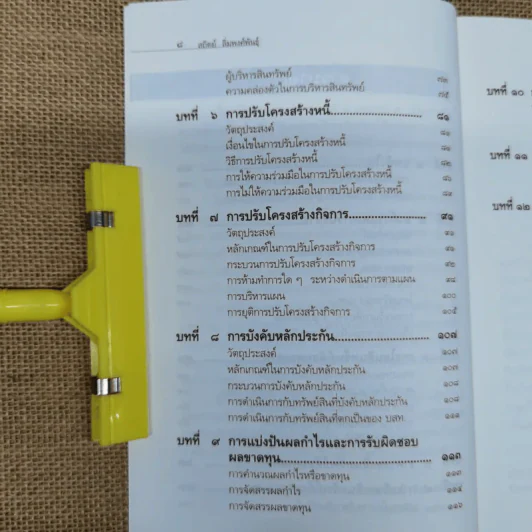 ๘ สถิตย์ ลิ่มพงศ์พันธุ์
ผู้บริหารสินทรัพย์ ๗๓
ความคล่องตัวในการบริหารสินทรัพย์ ๗๕
บทที่ ๖ การปรับโครงสร้างหนี้ ๘๑
วัตถุประสงค์ ๘๑
เงื่อนไขในการปรับโครงสร้างหนี้ ๘๑
วิธีการปรับโครงสร้างหนี้ ๘๒
การให้ความร่วมมือในการปรับโครงสร้างหนี้
การไม่ให้ความร่วมมือในการปรับโครงสร้างหนี้
บทที่ ๗ การปรับโครงสร้างกิจการ ๙๑
วัตถุประสงค์ ๙๑
หลักเกณฑ์ในการปรับโครงสร้างกิจการ
กระบวนการปรับโครงสร้างกิจการ ๙๒
การห้ามทำการใด ๆ ระหว่างดำเนินการตามแผน
การบริหารแผน ๑๐๐
การยุติการปรับโครงสร้างกิจการ ๑๐๕
บทที่ ๘ การบังคับหลักประกัน ๑๐๗
วัตถุประสงค์ ๑๐๗
หลักเกณฑ์ในการบังคับหลักประกัน ๑๐๗
กระบวนการบังคับหลักประกัน ๑๐๘
การดำเนินการกับทรัพย์สินที่บังคับหลักประกัน ๑๐๘
การดำเนินการกับทรัพย์สินที่ตกเป็นของ บสท. ๑๑๑
บทที่ ๙ การแบ่งปันผลกำไรและการรับผิดชอบ
ผลขาดทุน ๑๑๓
การคำนวณผลกำไรหรือขาดทุน ๑๑๓
การจัดสรรผลกำไร ๑๑๔
การจัดสรรผลขาดทุน
บทที่ ๑๐
บทที่ ๑๑
บทที่ ๑๒